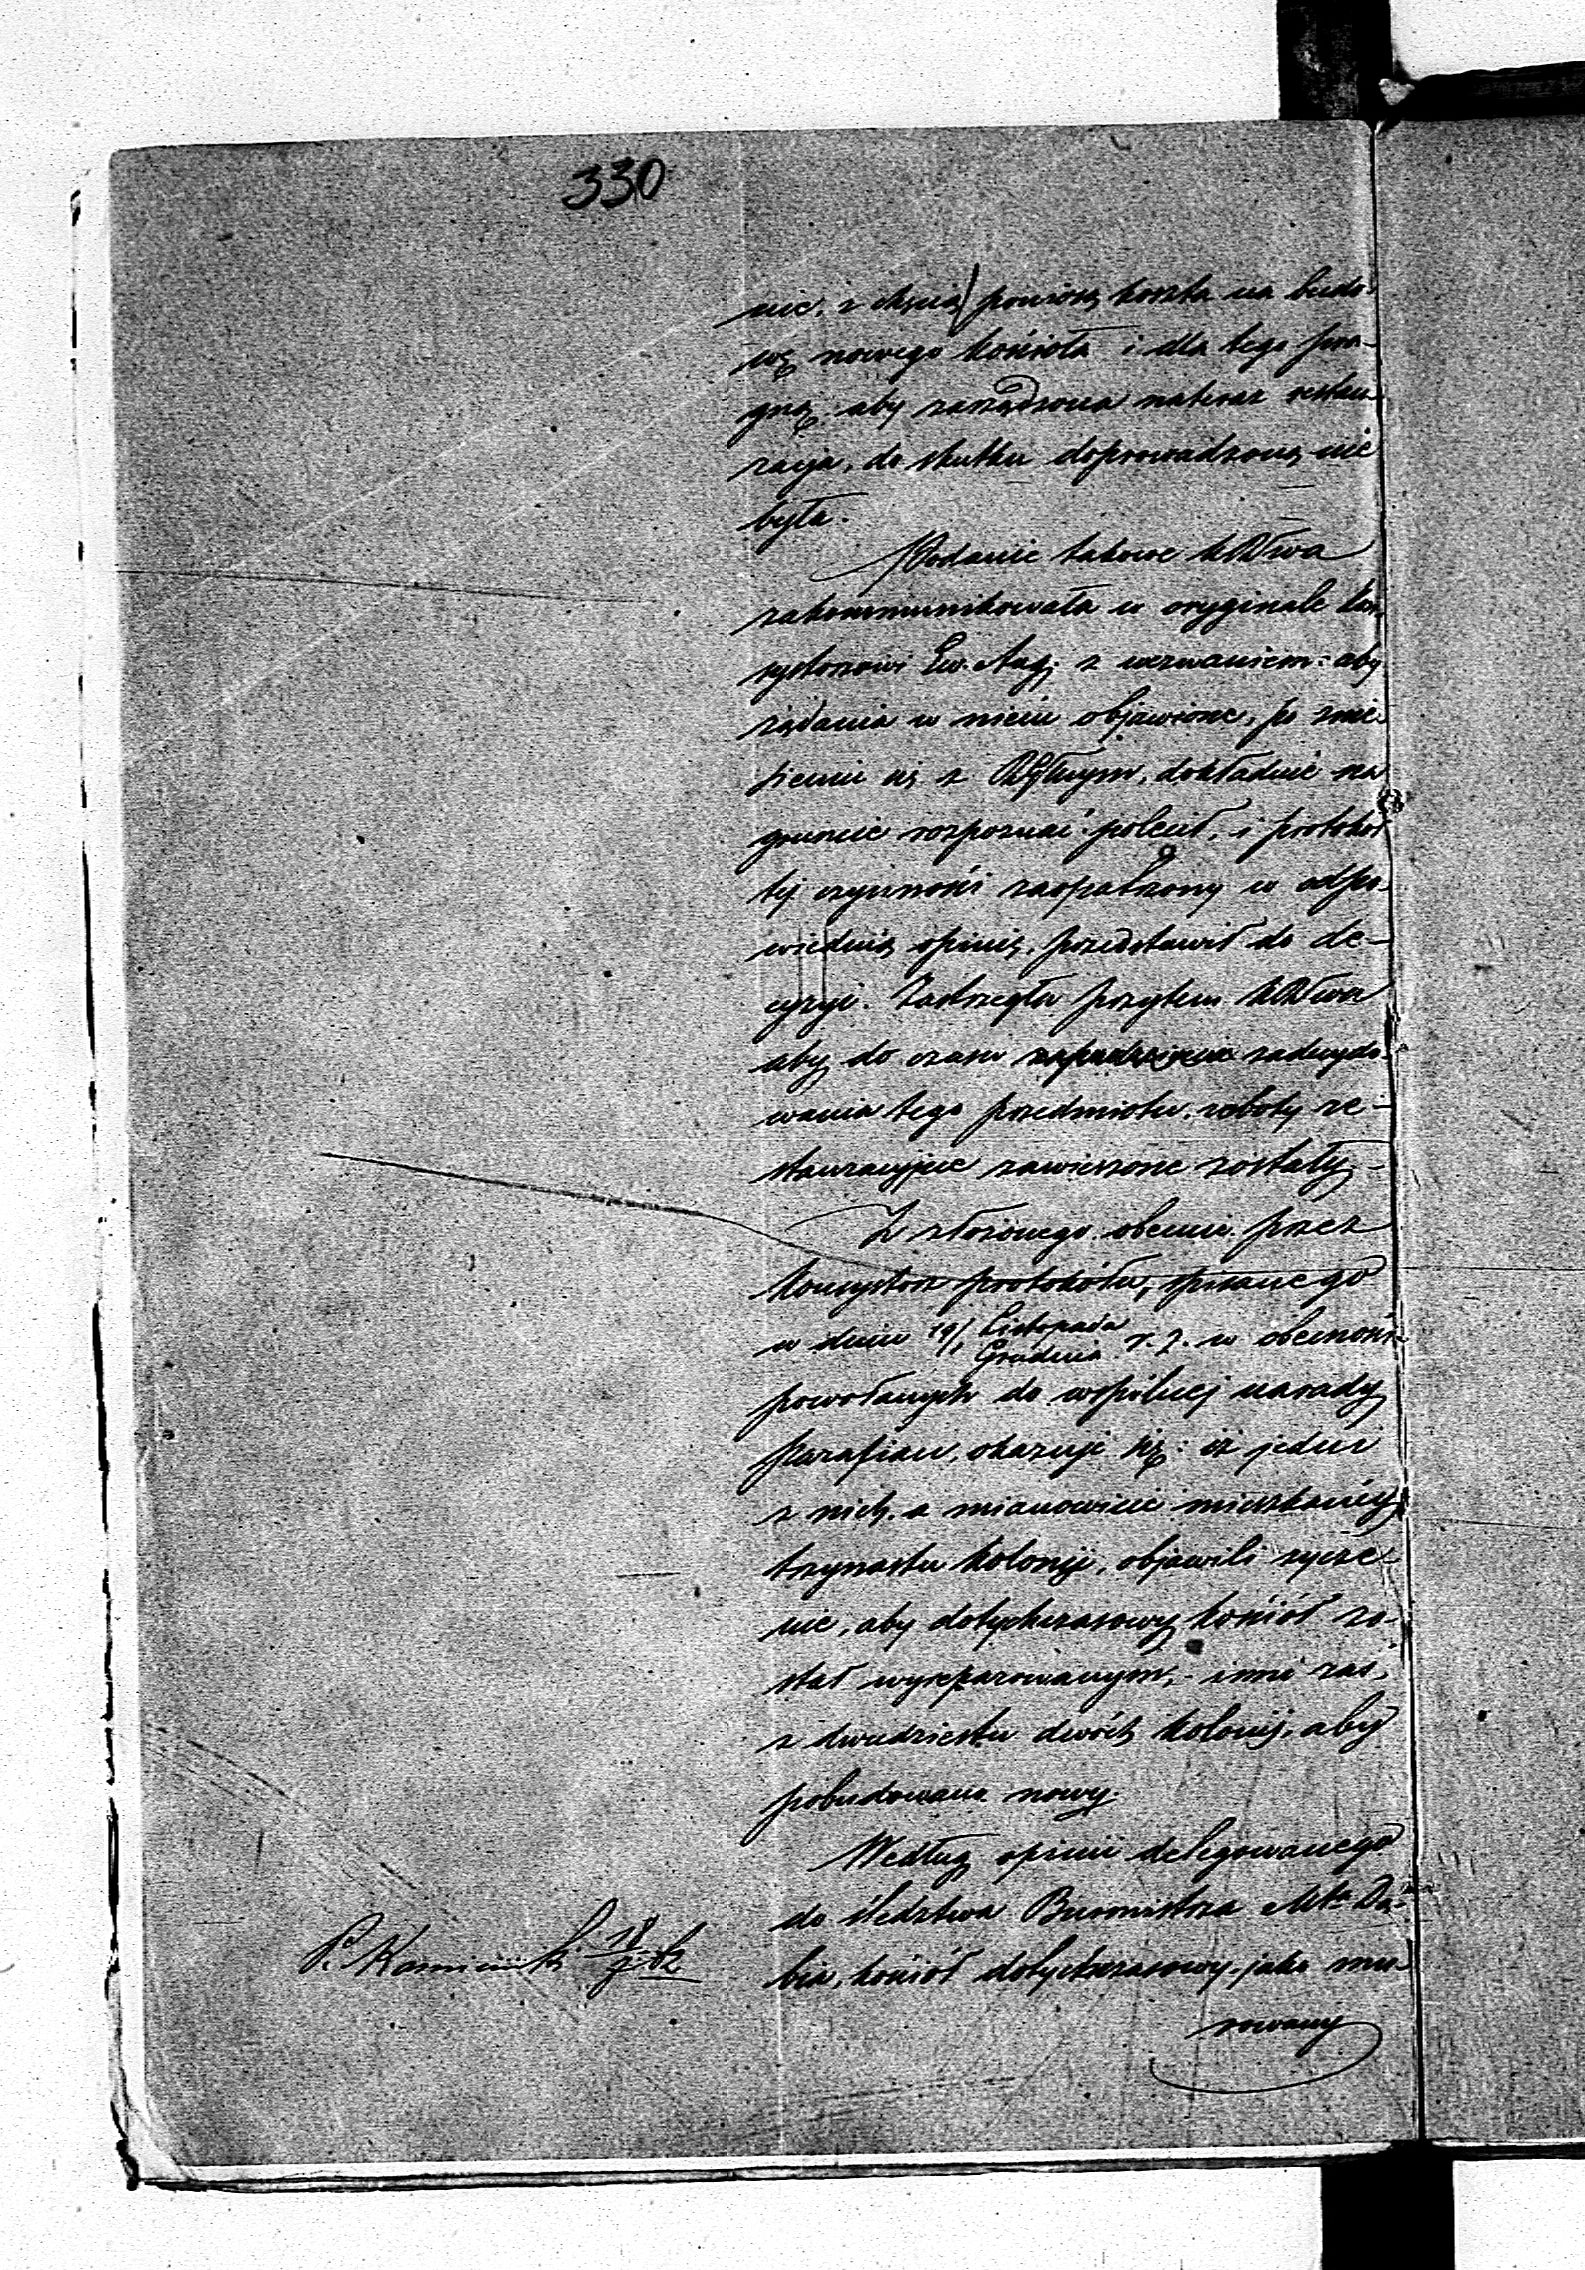 330
nie, z chęcią poniosą koszta na budo-
wę nowego kościoła i dla tego pra-
gną, aby zarządzona nateraz restau-
racja, do skutku doprowadzoną nie
była.
Podanie takowe KRząwa
zakommunikowała w oryginale kon-
systorzowi Ew. Aug. z wezwaniem: aby
żądania w niem objawione, po znie-
sieniu się z dokładnie na
gruncie rozpoznać polecił, i protokół
tej czynności zaopatrzony w odpo-
wiednią opinię, przedstawił do de-
cyzyi. Zastrzegła przytem KRząwa
aby do czasu zadecydo-
wania tego przedmiotu, roboty re-
stauracyjne zawieszone zostały -
Z złożonego obecnie przez
konsystorz protokółu, spisanego
w dniu 19/1 Listopada
Grudnia r. z. w obecności
powołanych do wspólnej narady
parafian, okazuje się: iż jedni
z nich, a mianowicie mieszkańcy
trzynastu kolonji, objawili życze-
nie, aby dotychczasowy kościół zo-
stał wyreparowanym, - inni zaś,
z dwudziestu dwóch kolonij, aby
pobudowano nowy.
Według opinii delegowanego
do śledztwa Burmistrza Mta Dą-
bia, kościół dotychczasowy, jako mu-
rowany
P. Kamiński 18